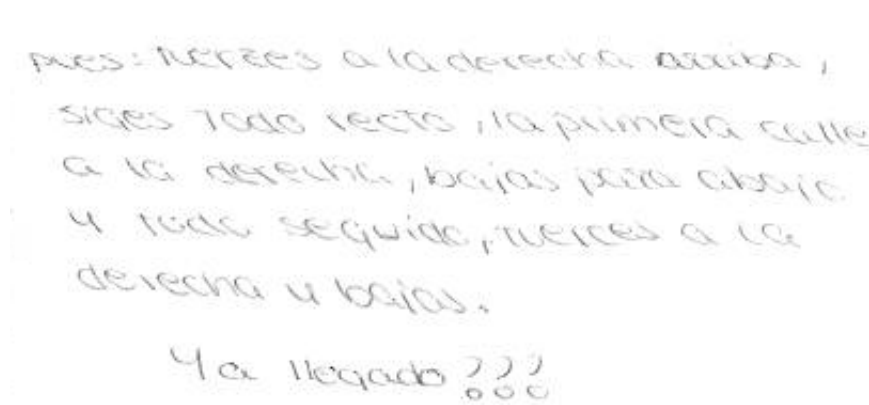 pues: tuerzes a la derecha arriba,
siges todo recto, la primera calle
a la derecha, bajas para abajo
y todo seguido, tuerces a la
derecha y bajas.
Ya llegado!!!